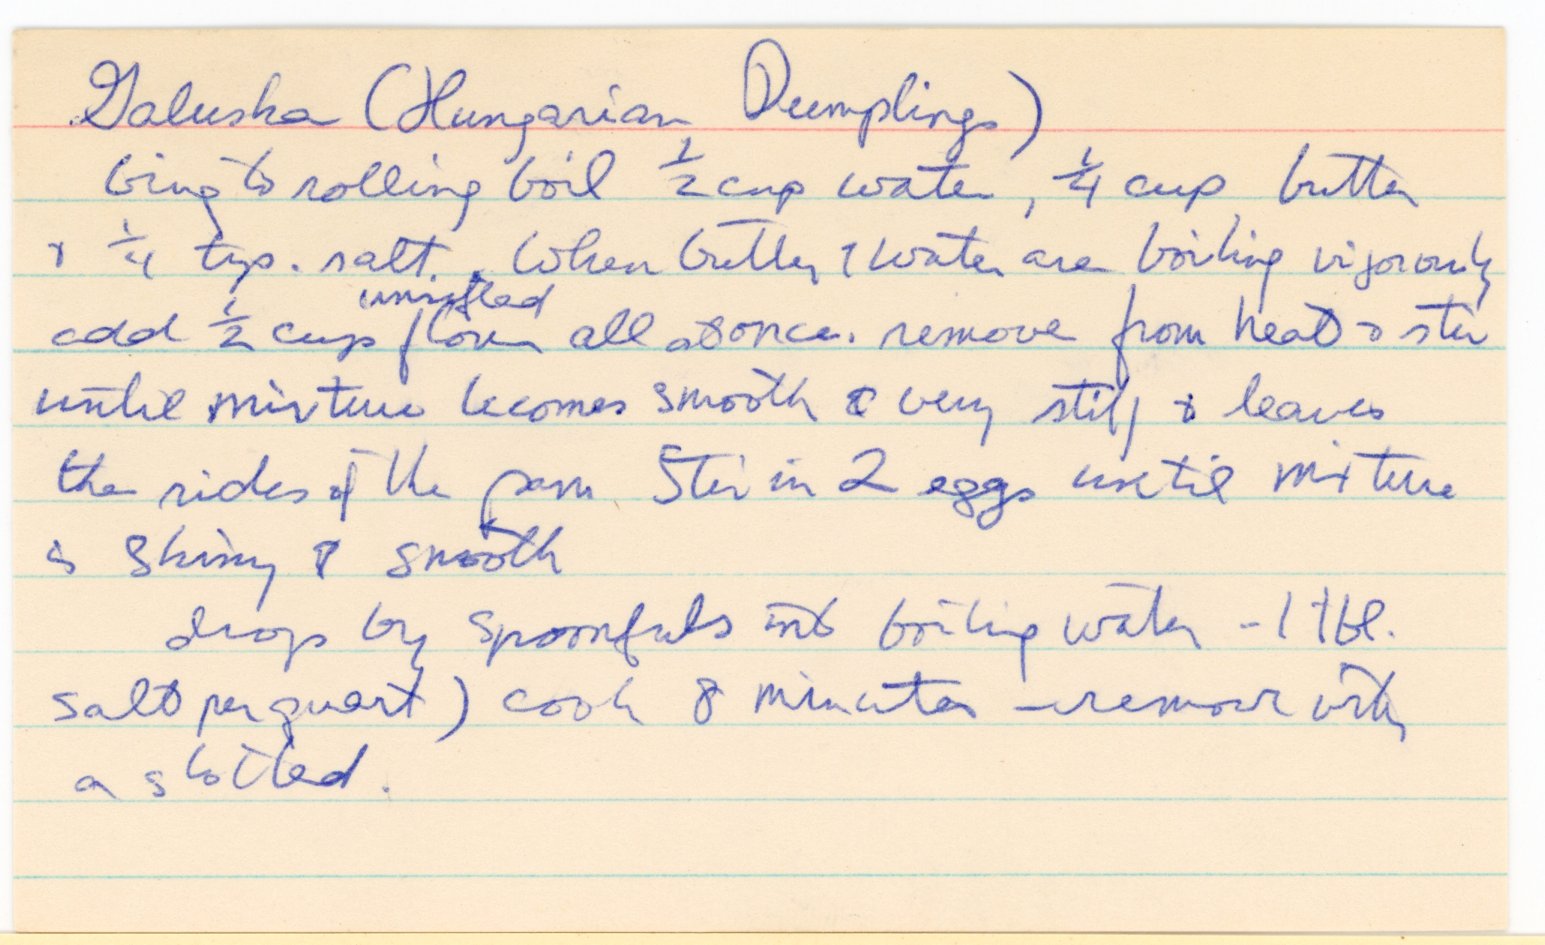 Galuska (Hungarian Dumplings)
bring to rolling boil 1/2 cup water, 1/4 cup butter
& 1/4 tsp. salt. When butter & water are boiling vigorously
unsifted
add 1/2 cup flour all at once. remove from heat & stir
until mixture becomes smooth & very stiff & leaves
the sides of the pan. Stir in 2 eggs until mixture
is shiny & smooth
drop by spoonfuls into boiling water - 1 tbl.
salt per quart) cook 8 minutes - remove with
a slotted.